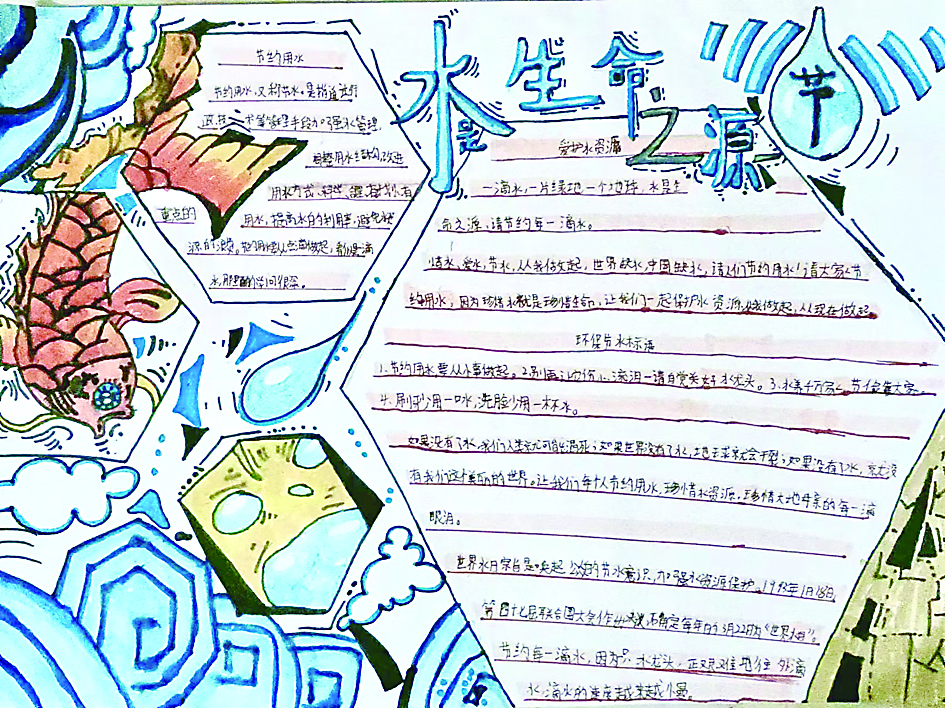 水是生命之源
节
节约用水
节约用水，又称节水。是指通过行
调整用水结构、改进
用水方式，科学、合理、有计划、有
重点的
用水，提高水的利用率，避免水资
源的浪费。
爱护水资源
一滴水，一片绿地一个地球，水是生
命之源，请节约每一滴水。
惜水，爱水，节水，从我做起，世界缺水，中国缺水，请人们节约用水！请大家节
约用水，因为珍惜水就是珍惜生命，让我们一起保护水资源，从我做起，从现在做起。
环保节水标语
1.节约用水要从小事做起。2.别再让
4.刷牙少用一口水，洗脸少用一杯水。
如果没有了水，我们人类就可能渴死；如果世界没有了水，地球就会干裂；如果没有了水，就没
有我们这个美丽的世界。让我们每个人节约用水，珍惜水资源，珍惜大地母亲的每一滴
眼泪。
世界水日宗旨是唤起公众的节水意识，加强水资源保护。1993年1月18日，
第四十七届联合国大会作出决议，确定每年的3月22日为“世界水日”。
节约每一滴水，因为
水，滴水的速度越来越小器。